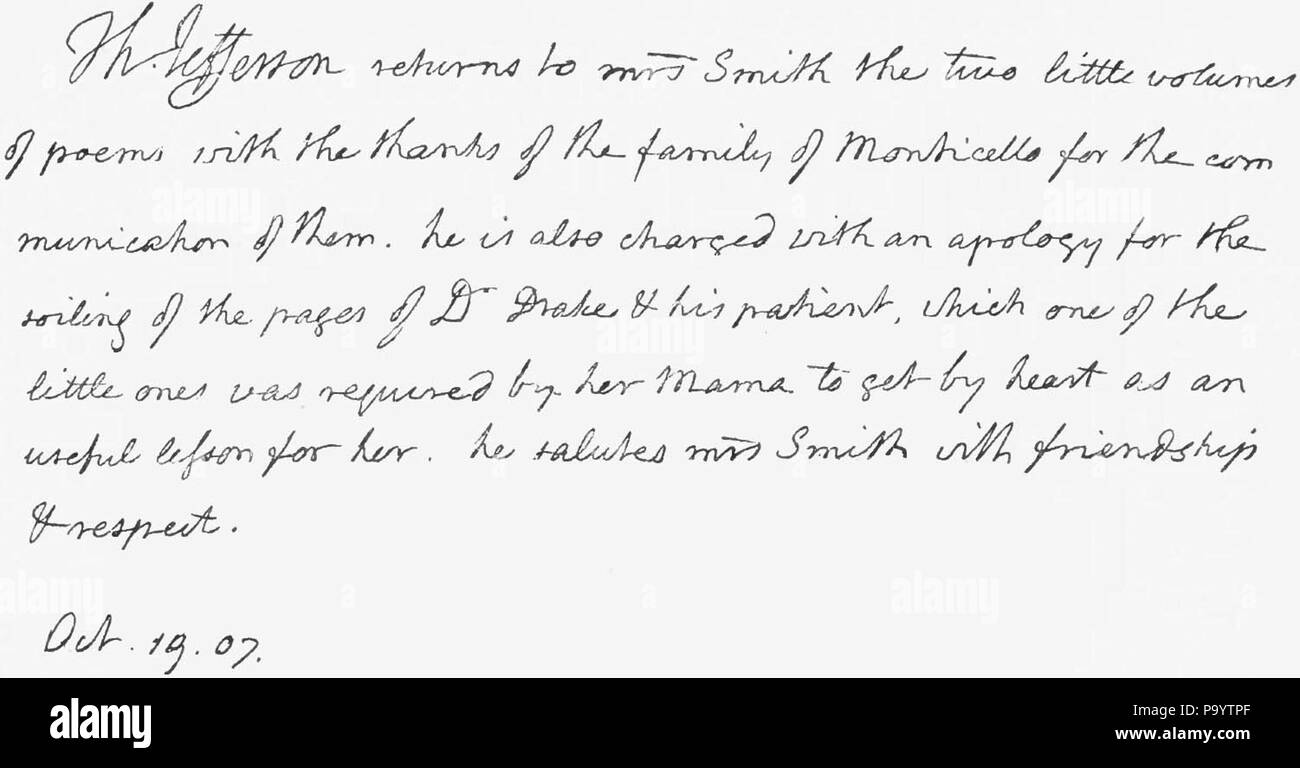 Th. Jefferson returns to mrs Smith the two little volumes
of poems with the thanks of the family of Monticello for the com
munication of them. he is also charged with an apology for the
soiling of the pages of Dr Drake & his patient, which one of the
little ones was required by her Mama to get by heart as an
useful lesson for her. he salutes mrs Smith with friendship
& respect.
Oct. 19. 07.
alamy
Image ID: P9YTPF
www.alamy.com